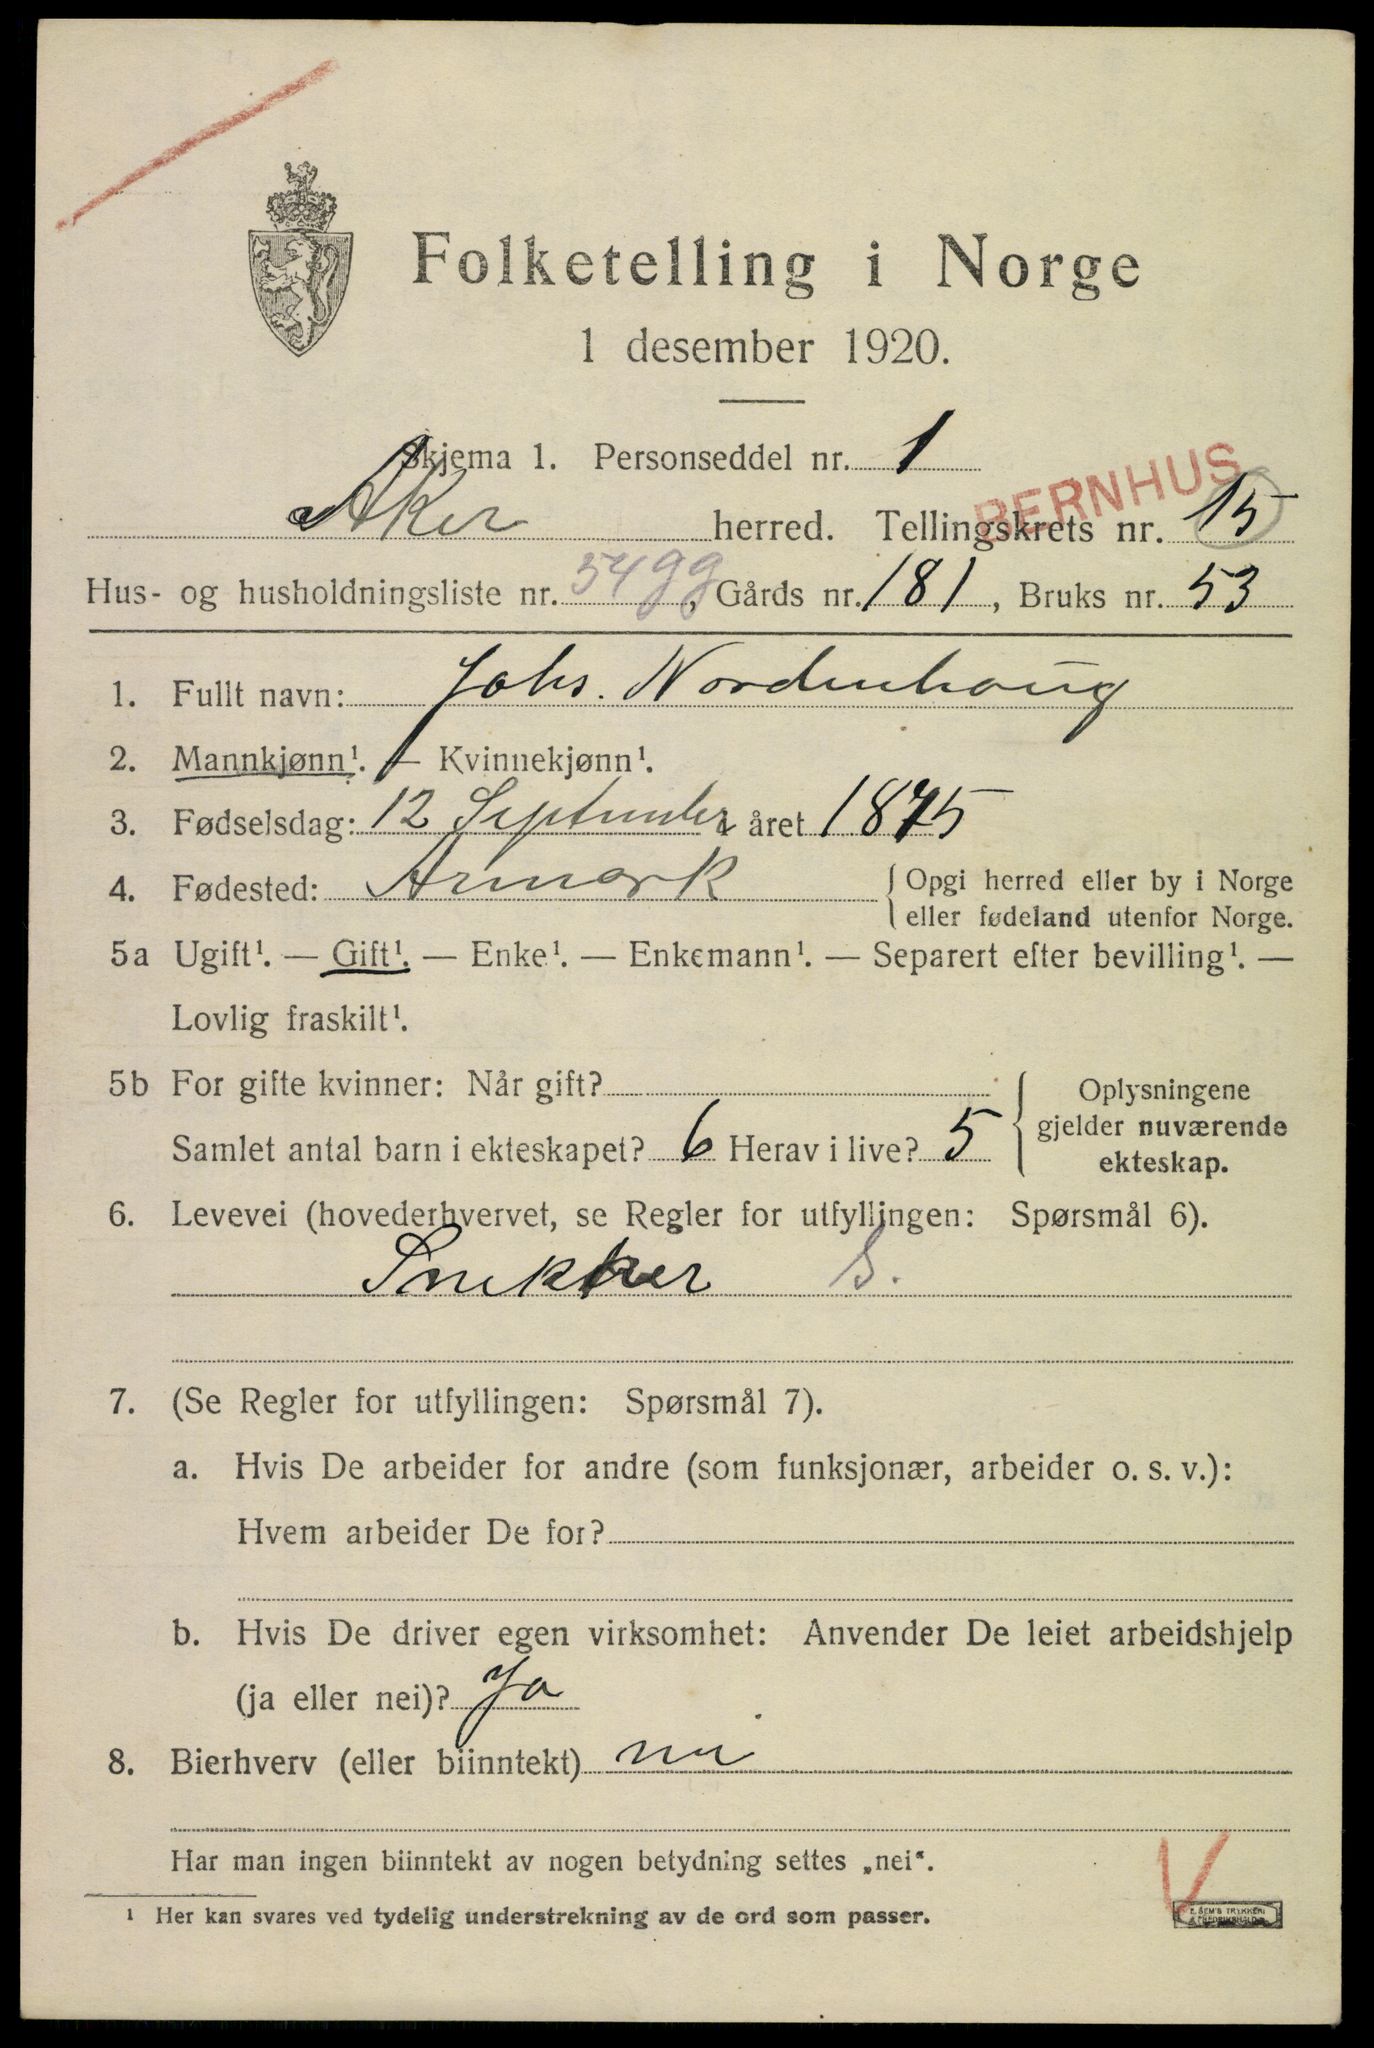 Folketelling i Norge
1 desember 1920.
Skjema 1. Personseddel nr. 1
BERNHUS
Aker herred. Tellingskrets nr. 15
Hus- og husholdningsliste nr. 5499, Gårds nr. 181, Bruks nr. 53
1. Fullt navn: Johs. Nordenhaug
2. Mannkjønn¹. — Kvinnekjønn¹.
3. Fødselsdag: 12 September året 1875
4. Fødested: Armark { Opgi herred eller by i Norge
eller fødeland utenfor Norge.
5a Ugift¹. — Gift¹. — Enke¹. — Enkemann¹. — Separert efter bevilling¹. —
Lovlig fraskilt¹.
5b For gifte kvinner: Når gift?
Samlet antal barn i ekteskapet? 6 Herav i live? 5
Oplysningene
gjelder nuværende
ekteskap.
6. Levevei (hovederhvervet, se Regler for utfyllingen: Spørsmål 6).
Snekker S.
7. (Se Regler for utfyllingen: Spørsmål 7).
a. Hvis De arbeider for andre (som funksjonær, arbeider o. s. v.):
Hvem arbeider De for?
b. Hvis De driver egen virksomhet: Anvender De leiet arbeidshjelp
(ja eller nei)? Ja
8. Bierhverv (eller biinntekt) nei
Har man ingen biinntekt av nogen betydning settes „nei“.
¹ Her kan svares ved tydelig understrekning av de ord som passer.
E. SEM'S TRYKKERI
FREDRIKSHALD